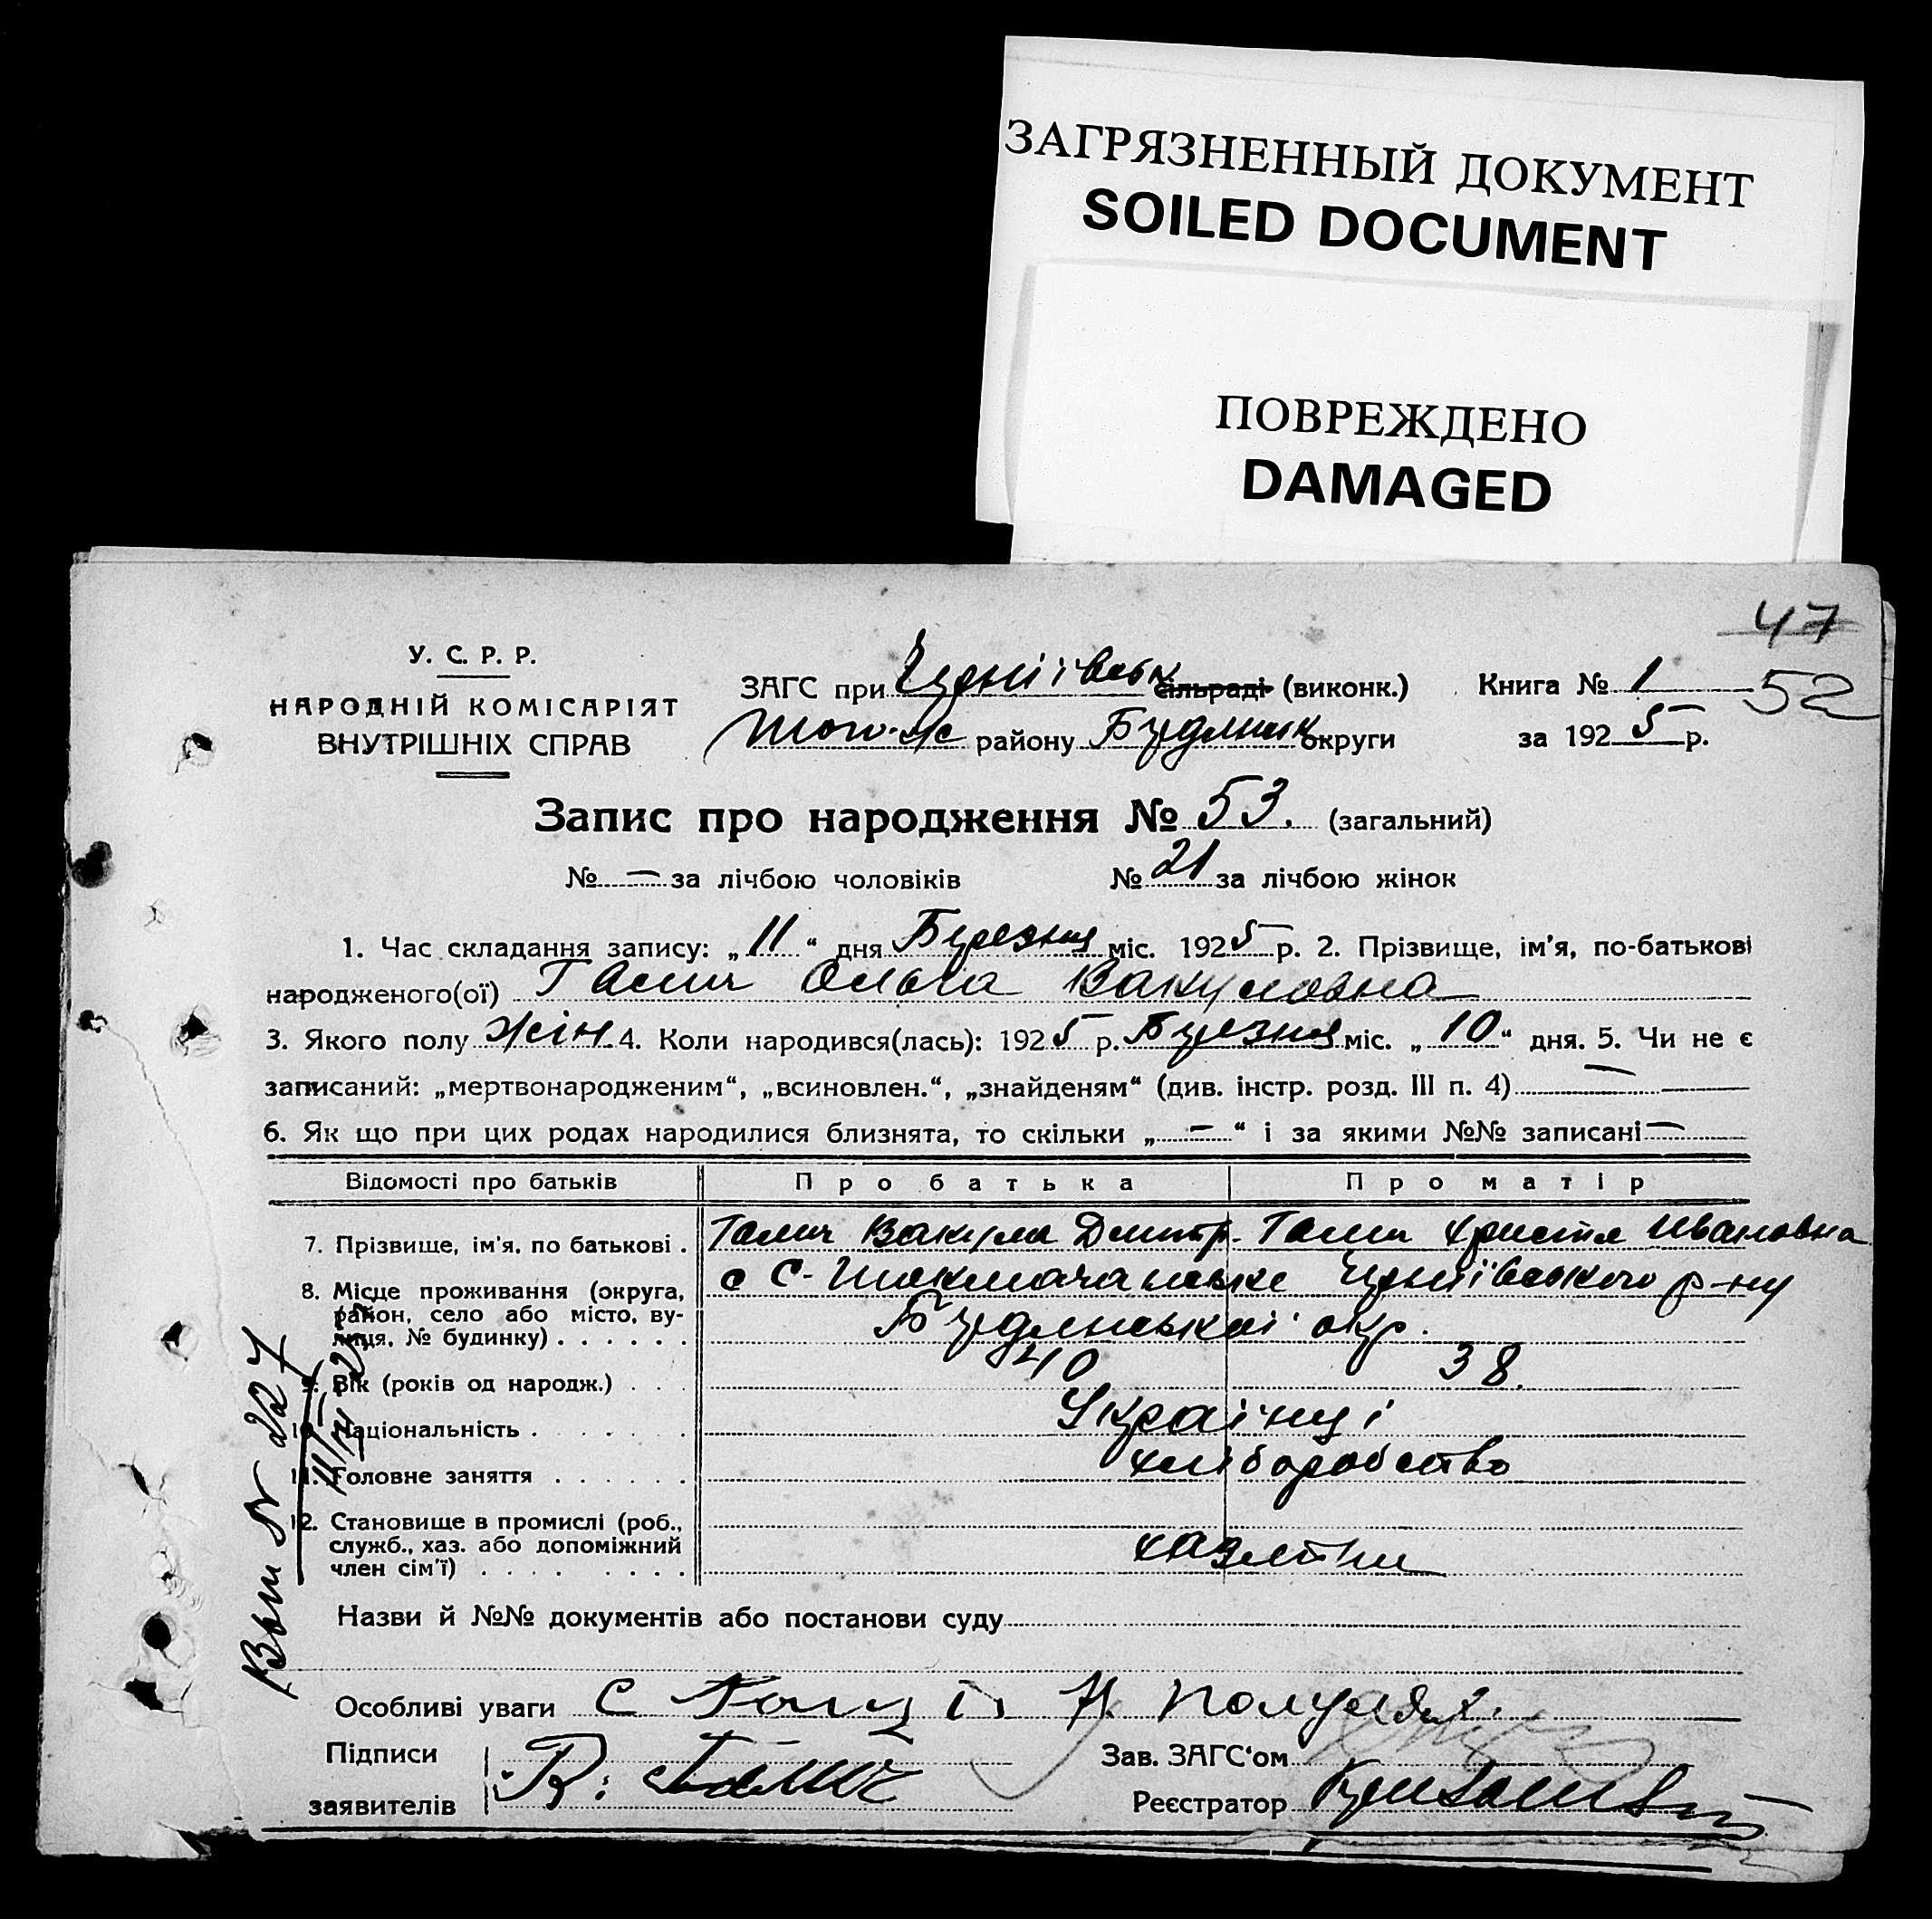 ЗАГРЯЗНЕННЫЙ ДОКУМЕНТ
SOILED DOCUMENT
ПОВРЕЖДЕНО
DAMAGED
47
52
У. С. Р. Р.
НАРОДНІЙ КОМІСАРІЯТ
ВНУТРІШНІХ СПРАВ
ЗАГС при сільраді (виконк.) Книга № 1
того-ж району округи за 1925 р.
Запис про народження № 53. (загальний)
№ — за лічбою чоловіків № 21 за лічбою жінок
1. Час складання запису: „11“ дня Березня міс. 1925 р. 2. Прізвище, ім’я, по-батькові
народженого(ої) Галич Ольга Вакуловна
3. Якого полу жін. 4. Коли народився(лась): 1925 р. Березня міс. „10“ дня. 5. Чи не є
записаний: „мертвонародженим“, „всиновлен.“, „знайденям“ (див. інстр. розд. III п. 4) —
6. Як що при цих родах народилися близнята, то скільки „—“ і за якими №№ записані —
Відомості про батьків Про батька Про матір
7. Прізвище, ім’я, по батькові . Галич Вакула Дмитр. Галич Христя Ивановна
8. Місце проживання (округа, район, село або місто, вулиця, № будинку) . . . . . . с. р-ну
окр.
9. Вік (років од народж.) . . . 40 38.
10. Національність . . . . . . . Українці
11. Головне заняття . . . . . . хліборобство
12. Становище в промислі (роб.,
служб., хаз. або допоміжний
член сім’ї) . . . . . . . . хазяїни
Назви й №№ документів або постанови суду
Особливі уваги
Підписи В. Галич Зав. ЗАГС‘ом
заявителів Реєстратор